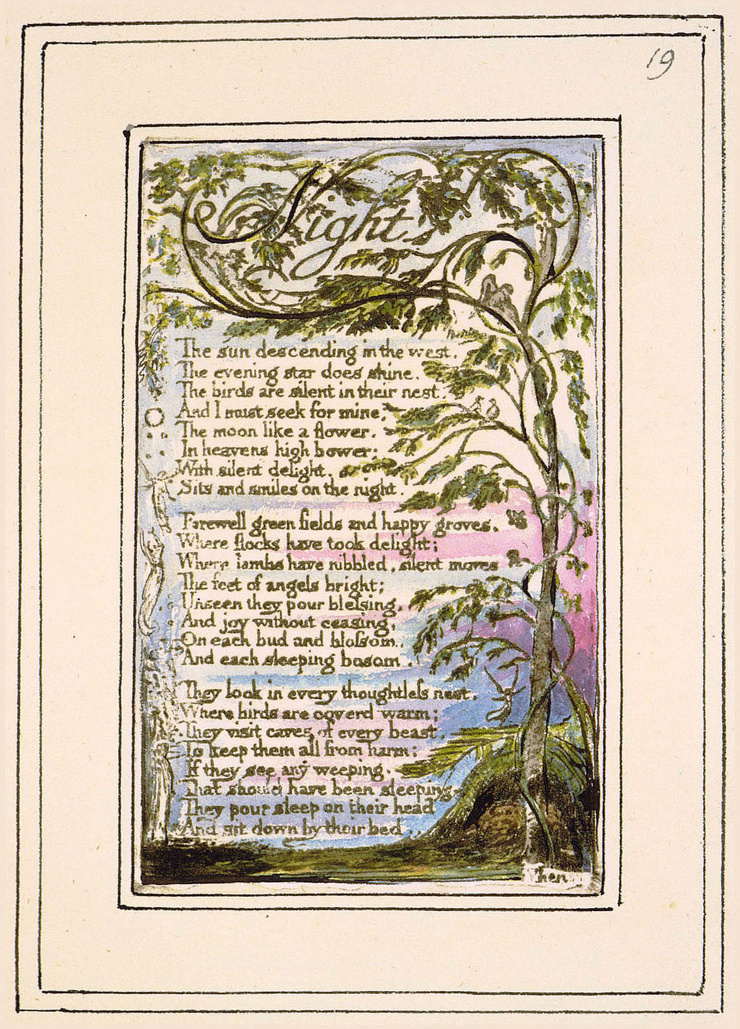 19
Night
The sun descending in the west.
The evening star does shine.
The birds are silent in their nest.
And I must seek for mine,
The moon like a flower.
In heavens high bower;
With silent delight.
Sits and smiles on the night.
Farewell green fields and happy groves,
Where flocks have took delight;
Where lambs have nibbled, silent moves
The feet of angels bright;
Unseen they pour blessing,
And joy without ceasing,
On each bud and blossom,
And each sleeping bosom.
They look in every thoughtless nest,
Where birds are coverd warm;
They visit caves of every beast
To keep them all from harm;
If they see any weeping.
That should have been sleeping
They pour sleep on their head
And sit down by their bed.
When